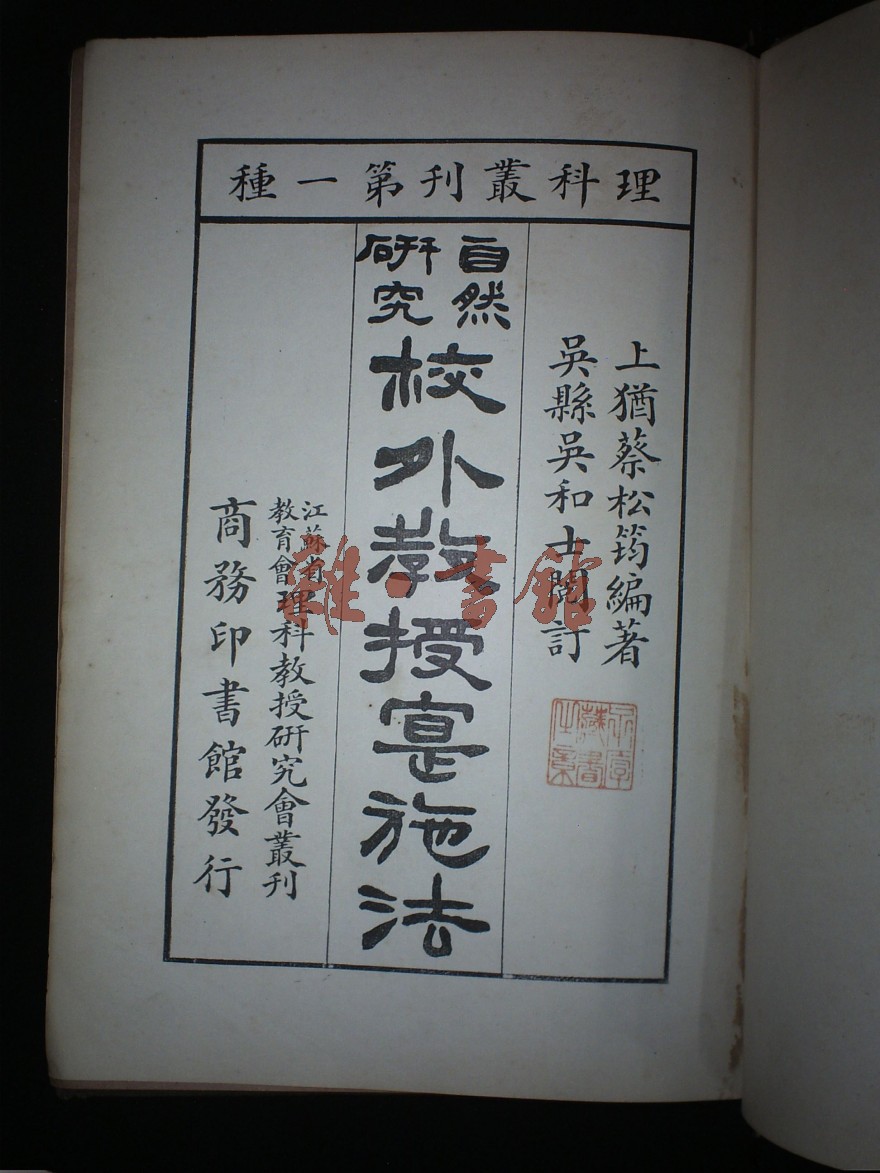 理科叢刊第一種
上猶蔡松筠編著
吳縣吳和士閱訂
藏書
之章
自然
研究
校外教授寔施法
江蘇省
教育會
理科教授研究會叢刊
商務印書館發行
雜·書館